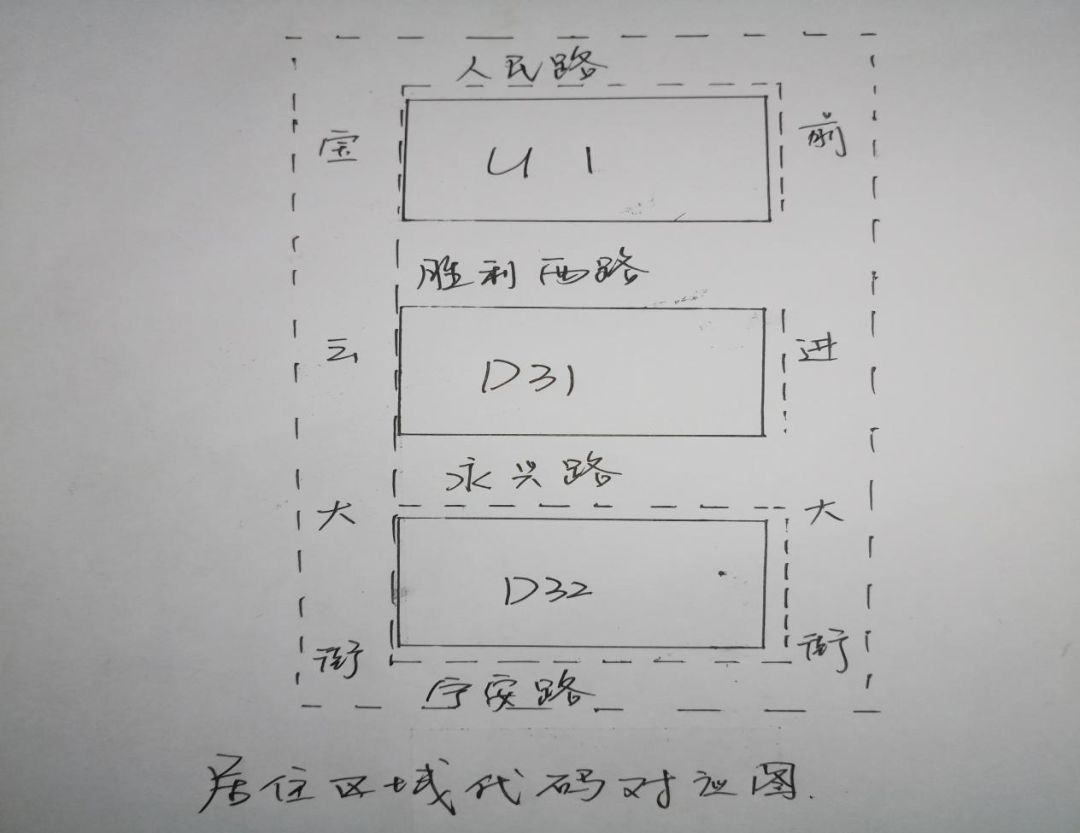 人民路
宝云大街
前进大街
U1
胜利西路
D31
永兴路
D32
宁安路
居住区域代码对应图.